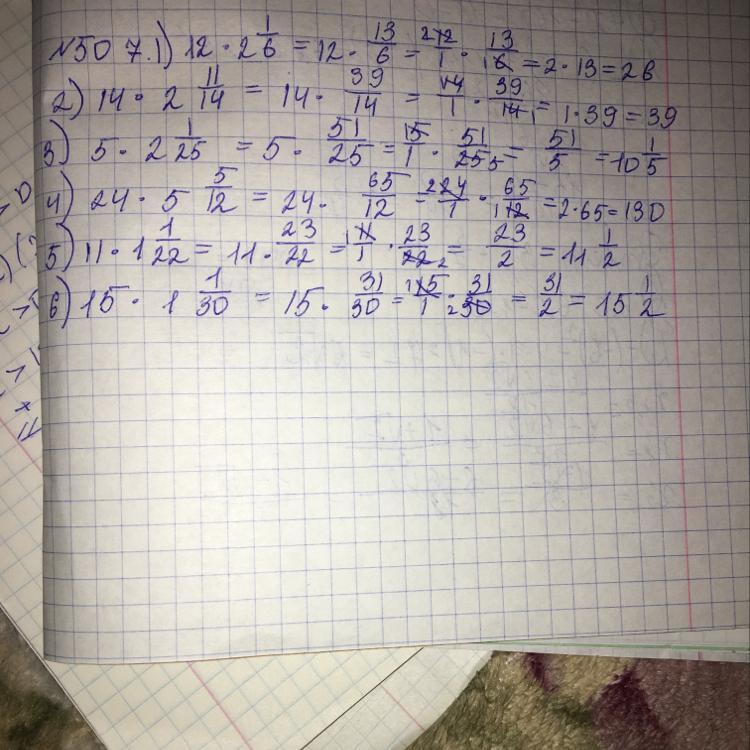 №507. 1) 12 · 2 1/6 = 12 · 13/6 = 12/1 · 13/6 = 2 · 13 = 26
2) 14 · 2 11/14 = 14 · 39/14 = 14/1 · 39/14 = 1 · 39 = 39
3) 5 · 2 1/25 = 5 · 51/25 = 5/1 · 51/25 = 51/5 = 10 1/5
4) 24 · 5 5/12 = 24 · 65/12 = 24/1 · 65/12 = 2 · 65 = 130
5) 11 · 1 1/22 = 11 · 23/22 = 11/1 · 23/22 = 23/2 = 11 1/2
6) 15 · 1 1/30 = 15 · 31/30 = 15/1 · 31/30 = 31/2 = 15 1/2